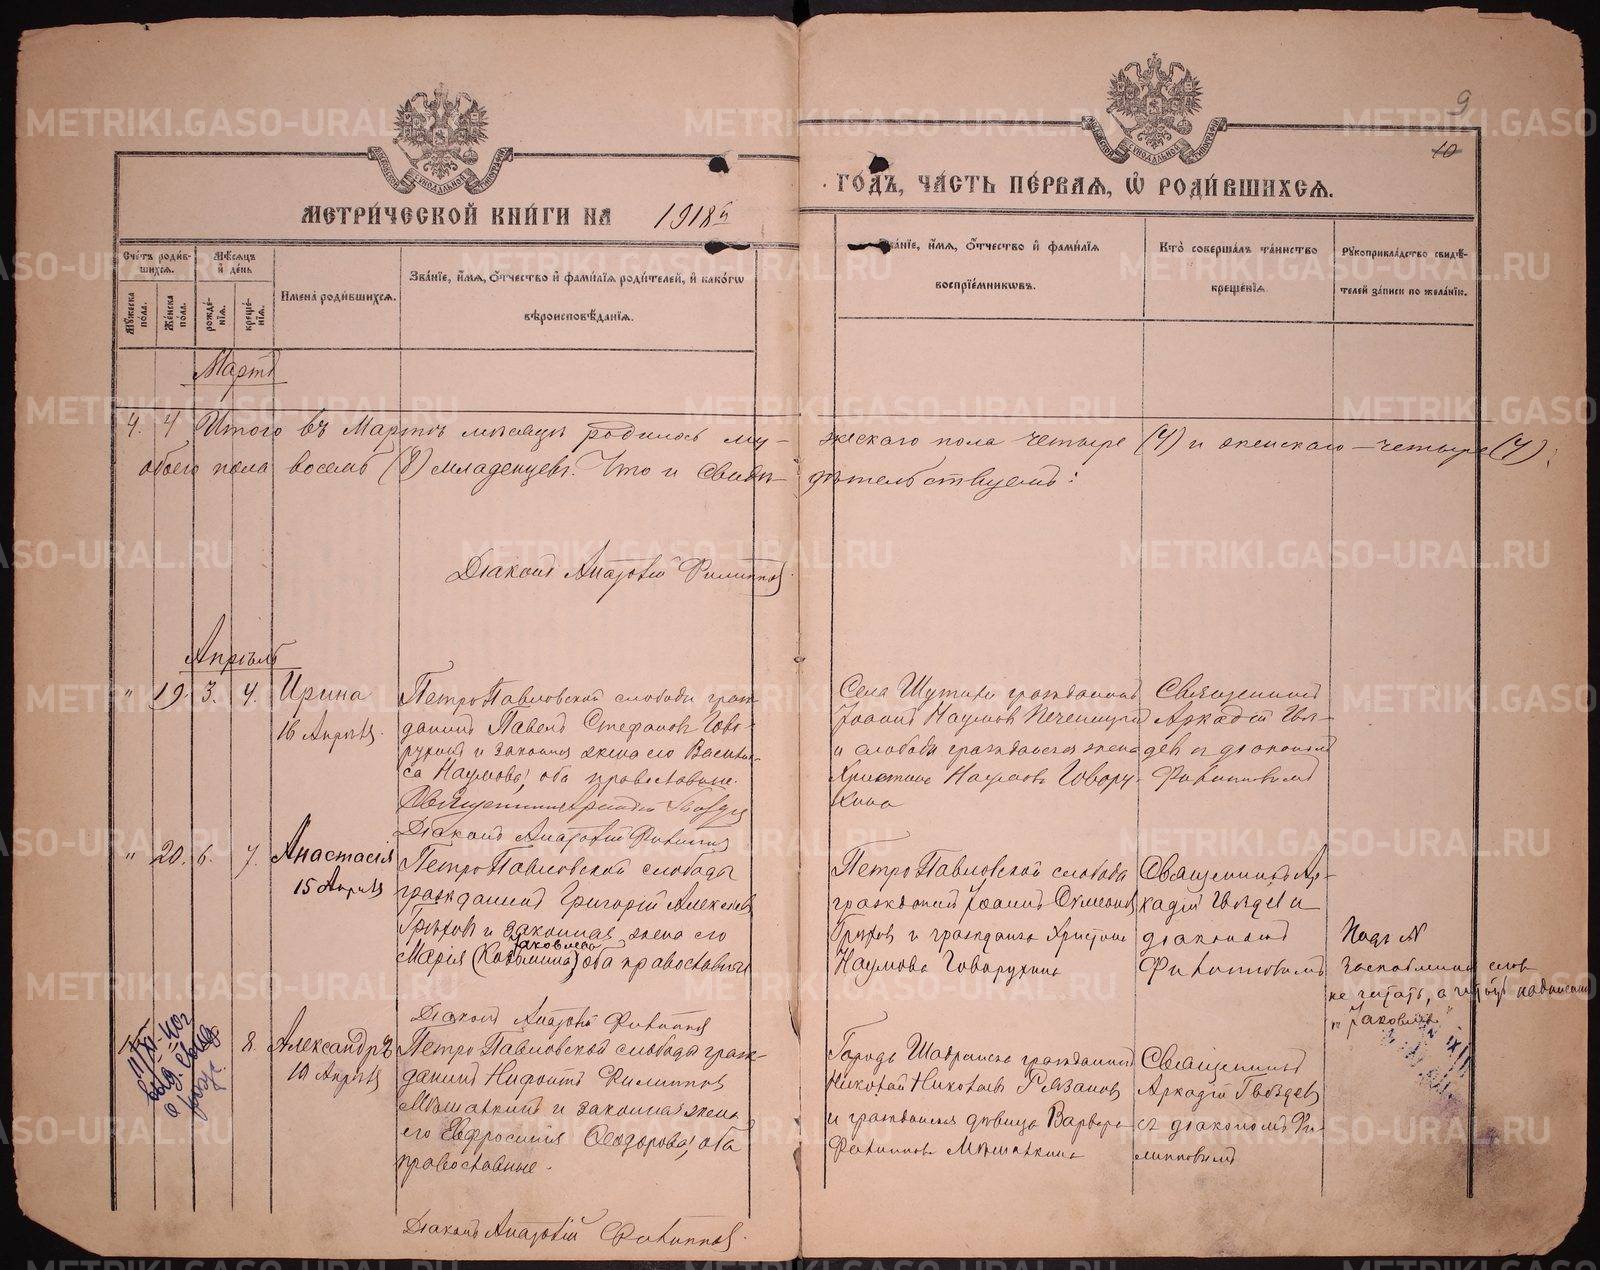 9
10
МЕТРИЧЕСКОЙ КНИГИ НА 1918й
ГОДЪ, ЧАСТЬ ПЕРВАЯ, Ѡ РОДИВШИХСЯ.
Счетъ родив-
шихся.
Мѣсяцъ
и день
Мужеска
пола.
Женска
пола.
рожде-
нія.
креще-
нія.
Имена родившихся.
Званіе, имя, отчество и фамилія родителей, и какогѡ
вѣроисповѣданія.
Званіе, имя, отчество и фамилія
воспріемниковъ.
Кто совершалъ таинство
крещенія.
Рукоприкладство свидѣ-
телей записи по желанію.
Мартъ
4. 4 Итого въ Мартѣ мѣсяцѣ родилось му-
жескаго пола четыре (4) и женскаго – четыре (4);
обоего пола восемь (8) младенцевъ. Что и свидѣ-
тельствуемъ:
Діаконъ Анатолій Филиппов
Апрѣль
" 19. 3. 4. Ирина
16 Апрѣля.
ПетроПавловской слободы граж-
данинъ Павелъ Стефановъ Гово-
рухинъ и законная жена его Васили-
са Наумова; оба православные.
Священникъ Аркадій Гвоздев
Діаконъ Анатолій Филиппов
Села гражданинъ
Іоаннъ Наумов
и слободы гражданская жена
Христина Наумова Говору-
хина
Священникъ
Аркадій Гвоз-
девъ съ діакономъ
Филипповымъ
" 20. 6. 7. Анастасія
15 Апрѣля
ПетроПавловской слободы
гражданинъ Григорій Алексѣев
Грѣхов и законная жена его
Яковлева
Марія (Козьмина) оба православные
Діаконъ Анатолій Филиппов
ПетроПавловской слободы
гражданинъ Іоаннъ
Грѣхов и гражданка Христина
Наумова Говорухина
Священникъ Ар-
кадій Гвоздев и
діаконъ
Филипповымъ
Надъ №
слово
не читать, а читать надписанное
"Яковлева"
8. Александръ
19 Апрѣля
ПетроПавловской слободы граж-
данинъ Нифонтъ Филиппов
и законная жена
его Евфросинія Ѳеодорова; оба
православные.
Діаконъ Анатолій Филиппов.
Городъ Шадринска гражданинъ
Николай Николаев Рязанов
и гражданская дѣвица Варвара
Филиппова
Священникъ
Аркадій Гвоздев
съ діакономъ Фи-
липповымъ
METRIKI.GASO-URAL.RU